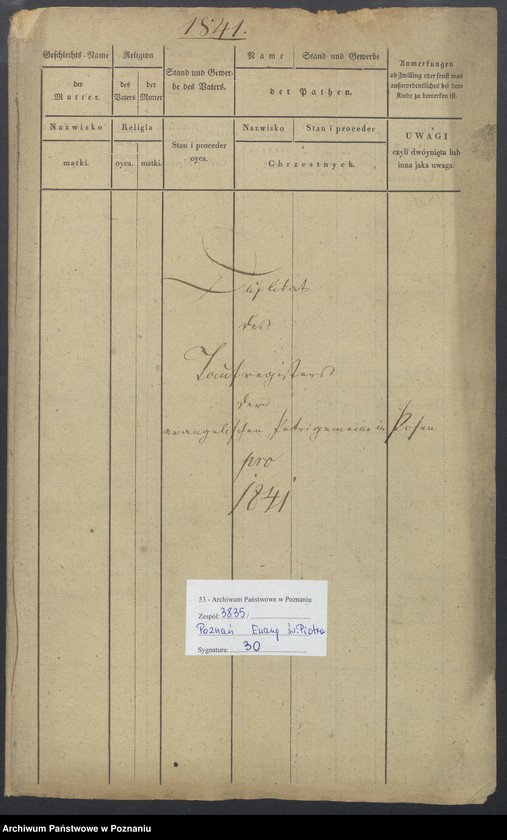 1841.
Geschlechts-Name
der
Mutter.
Religion
des Vaters
der Mutter
Stand und Gewer-
be des Vaters.
Name
Stand und Gewerbe
der Pathen.
Anmerkungen
ob Zwilling oder sonst was
außerordentliches bei dem
Kinde zu bemerken ist.
Nazwisko
matki.
Religia
oyca.
matki.
Stan i proceder
oyca.
Nazwisko
Stan i proceder
Chrzestnych.
UWAGI
czyli dwóynięta lub
inna jaka uwaga.
Duplicat
des
Taufregisters
der
evangelischen Petrigemeine in Posen
pro
1841
53 - Archiwum Państwowe w Poznaniu
Zespół: 3835,
Poznań Ewang św. Piotra
Sygnatura: 30
Archiwum Państwowe w Poznaniu